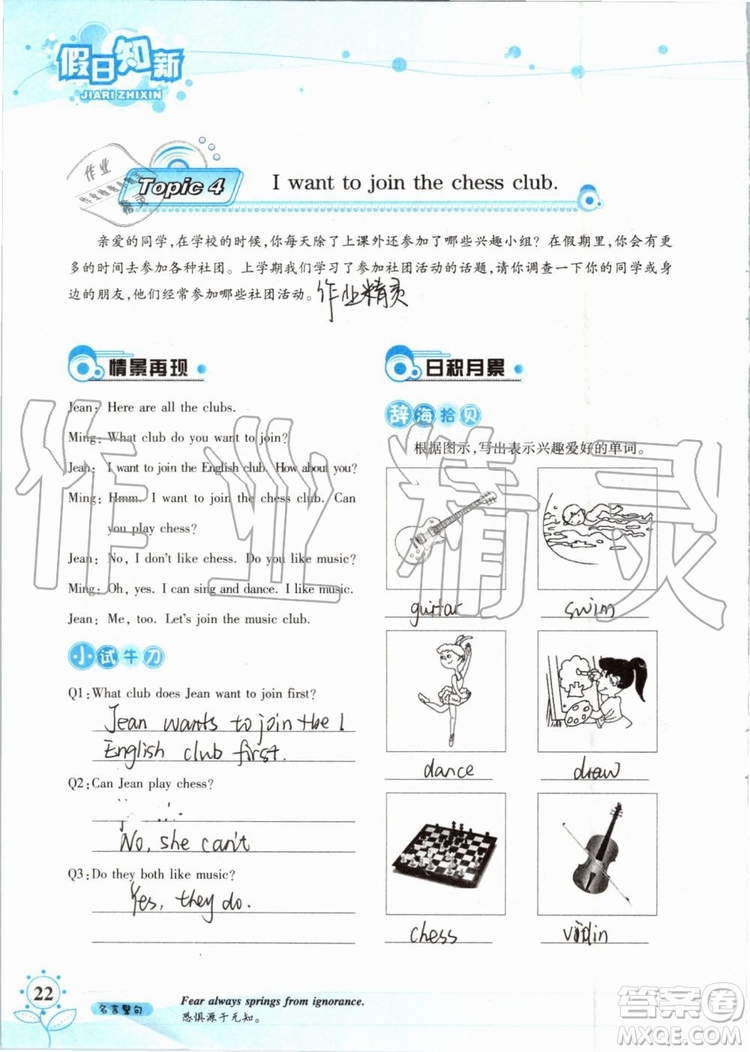 假日知新
JIARI ZHIXIN
作业
精灵
Topic 4
I want to join the chess club.
亲爱的同学,在学校的时候,你每天除了上课外还参加了哪些兴趣小组?在假期里,你有更
多的时间去参加各种社团。上学期我们学习了参加社团活动的话题,请你调查一下你的同学或身
边的朋友,他们经常参加哪些社团活动。作业精灵
情景再现
Jean: Here are all the clubs.
Ming: What club do you want to join?
Jean: I want to join the English club. How about you?
Ming: Hmm. I want to join the chess club. Can
you play chess?
Jean: No, I don't like chess. Do you like music?
Ming: Oh, yes. I can sing and dance. I like music.
Jean: Me, too. Let's join the music club.
小试牛刀
Q1: What club does Jean want to join first?
Jean wants to join the
English club first.
Q2: Can Jean play chess?
No, she can't
Q3: Do they both like music?
Yes, they do.
日积月累
辞海拾贝
根据图示,写出表示兴趣爱好的单词。
guitar swim
dance draw
chess violin
作业精灵
22
名言警句
Fear always springs from ignorance.
恐惧源于无知。
答案圈
MXQE.COM